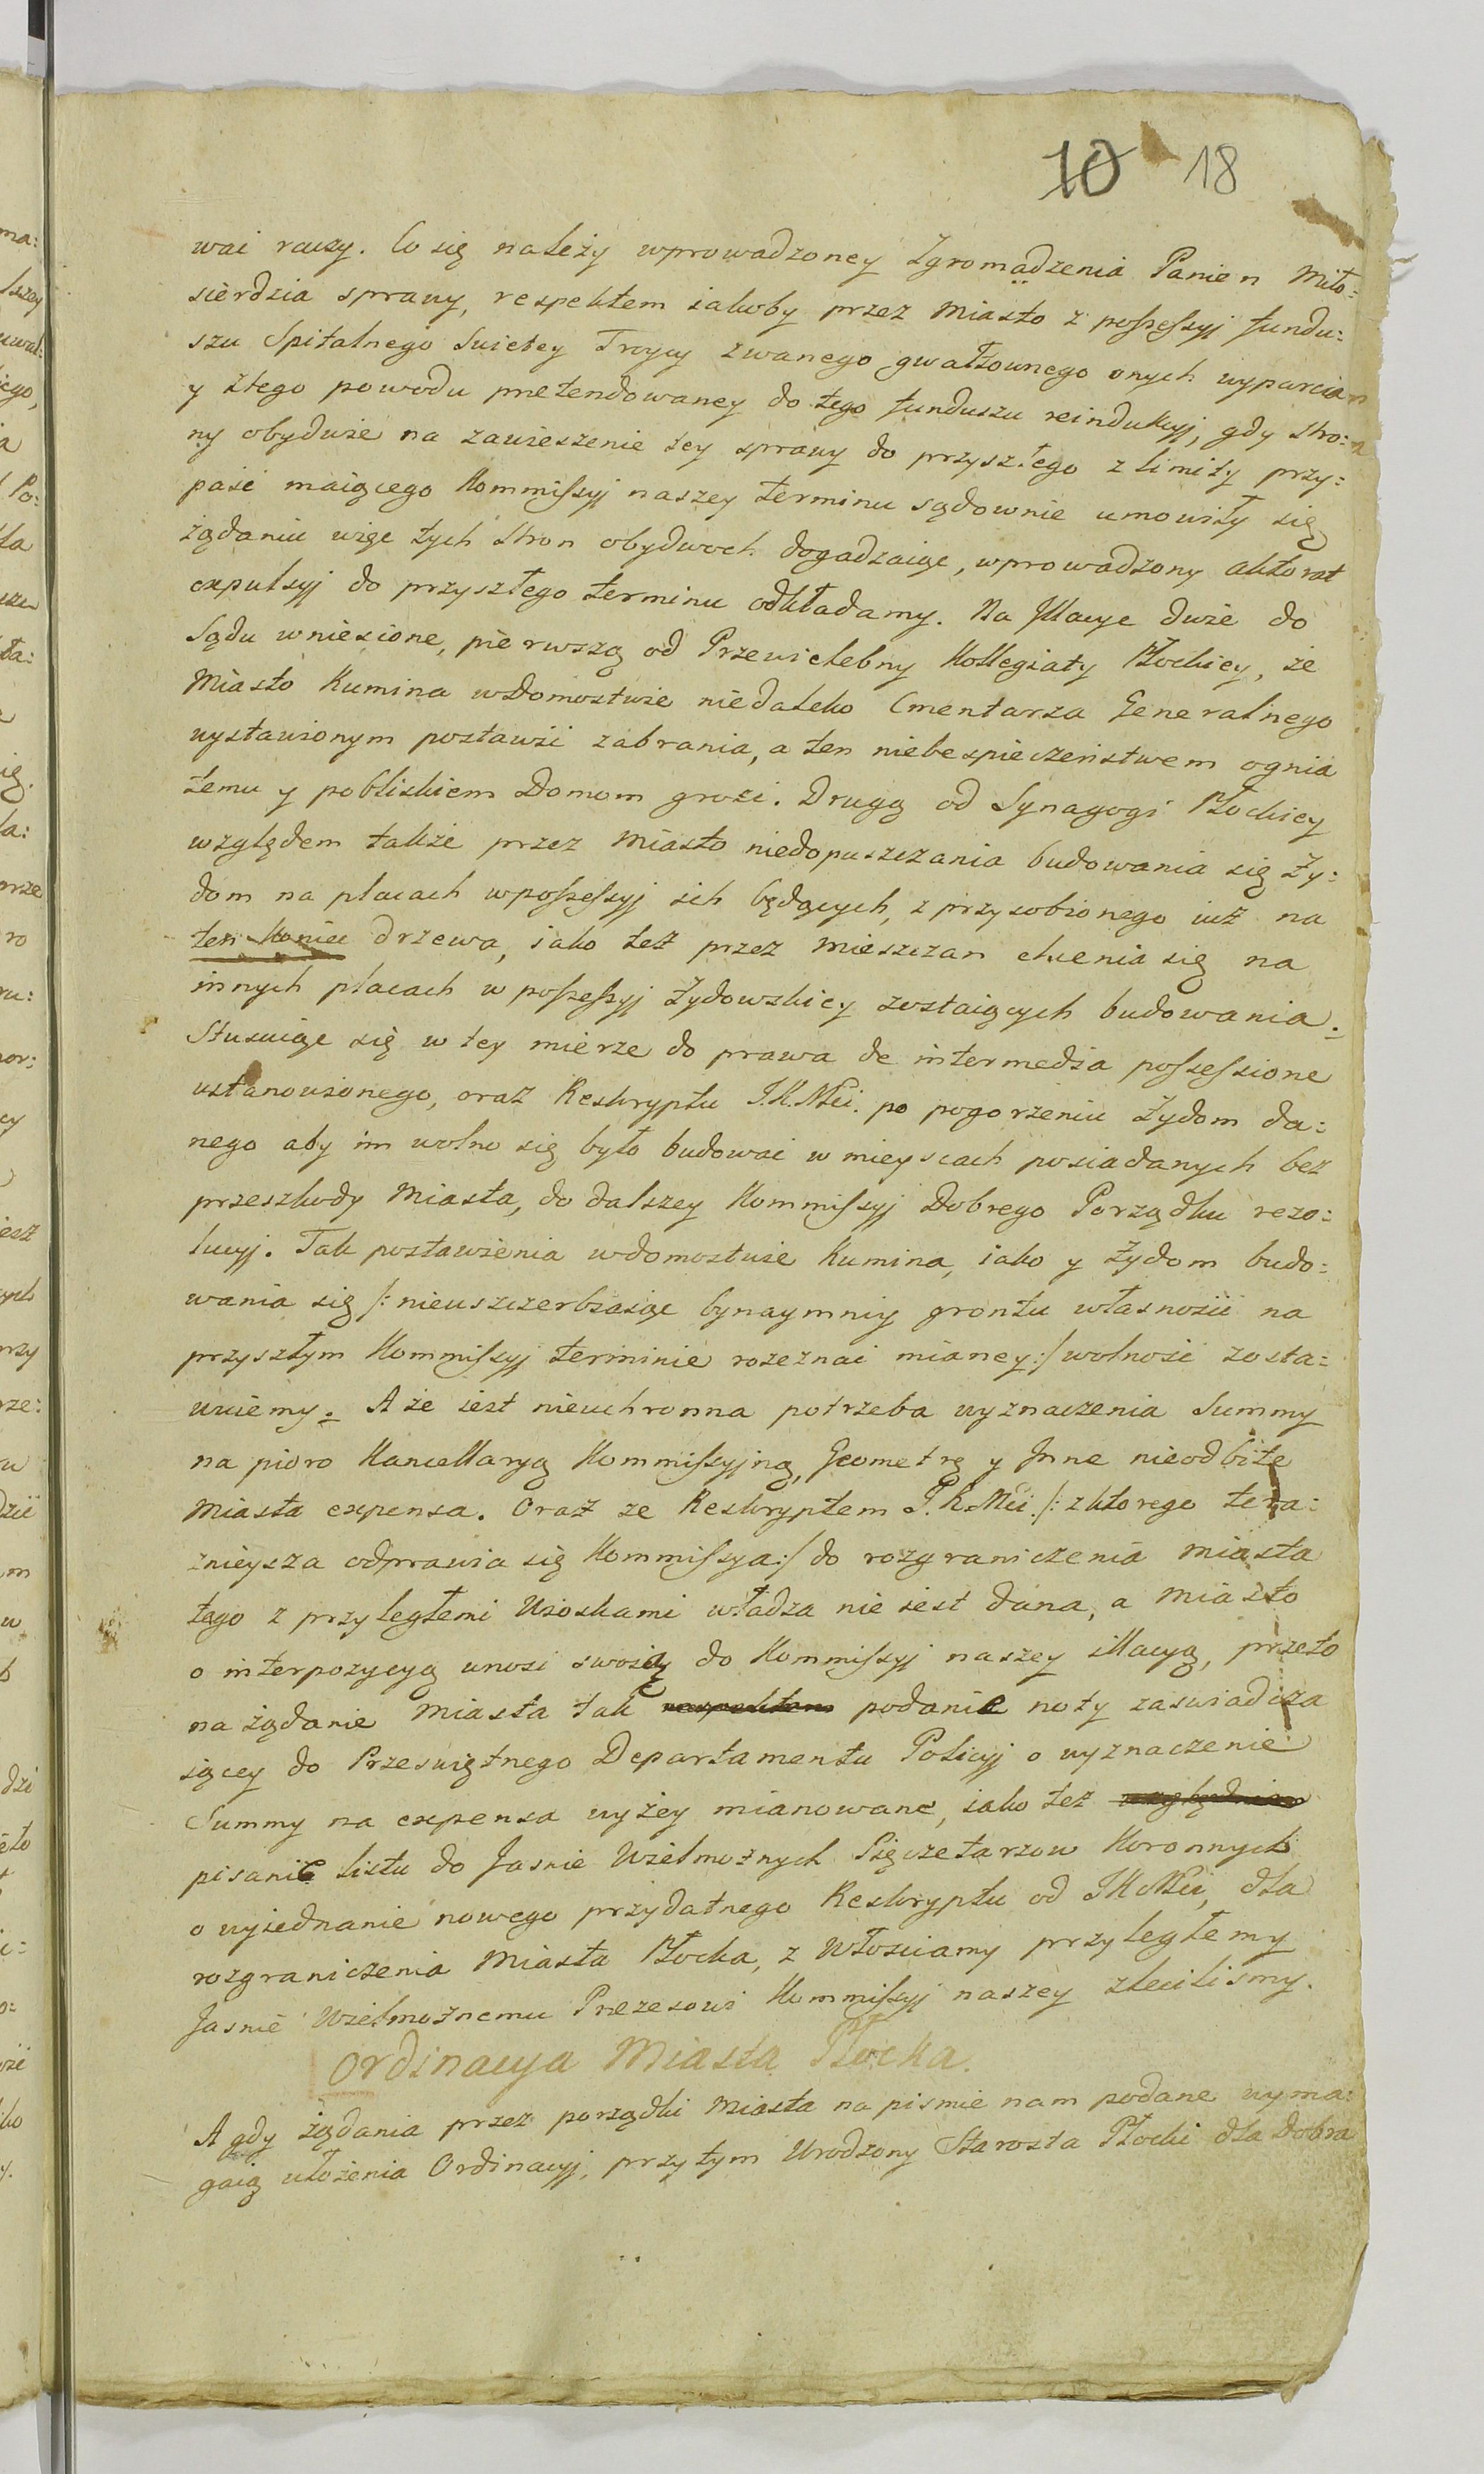 10 18
wai raczy. Co się należy wprowadzoney Zgromadzenia Panien Miło:
sierdzia sprawy, respektem iakoby przez Miasto z possessyj fundu:
szu Spitalnego Swietey Troycy zwanego gwałtownego onych wyparcia
y ztego powodu pretendowaney do tego funduszu reindukcyj, gdy stro:
ny obydwie na zawieszenie tey sprawy do przyszłego z limity przy:
paść maiącego Kommissyj naszey terminu sądownie umowiły się
żądaniu więc tych stron obydwoch dogadzaiąc, wprowadzony aktorat
expulsyj do przyszłego terminu odkładamy. Na Illacye dwie do
Sądu wniesione, pierwszą od Przewielebny Kollegiaty Płockiey, że
Miasto Kumina wDomostwie niedaleko Cmentarza Generalnego
wystawionym postawić zabrania, a ten niebespieczeństwem ognia
temu y pobliskiem Domom grozi. Drugą od Synagogi Płockiey
względem także przez Miasto niedopuszczania budowania się Ży:
dom na placach wpossessyj ich będących, z przysobionego iuż na
ten koniec drzewa, iako też przez Mieszczan chcenia się na
innych placach w possessyj Żydowskiey zostaiących budowania.
Stusuiąc się w tey mierze do prawa de intermedia possessione
ustanowionego, oraz Reskryptu J.K.Mci. po pogorzeniu Żydom da:
nego aby im wolno się było budowai w mieyscach posiadanych bez
przeszkody Miasta, do dalszey Kommissyj Dobrego Porządku rezo:
lucyj. Tak postawienia wdomostwie Kumina, iako y Żydom budo:
wania się /: nieuszczerbiaiąc bynaymniy grontu własności na
przyszłym Kommissyj terminie rozeznai mianey :/ wolność zosta:
wuiemy. A że iest nieuchronna potrzeba wyznaczenia Summy
na pioro Kancellaryą Kommissyjną, Geometrę y Inne nieodbite
Miasta expensa. Oraz ze Reskryptem J.K.Mci. /: z ktorego tera:
znieysza odprawia się Kommissya :/ do rozgraniczenia Miasta
tego z przyległemi Wioskami władza nie iest dana, a Miasto
o interpozycyą wnosi swoią do Kommissyj naszey illacyą, przeto
na żądanie Miasta tak respektem podanie noty zaswiadcza
iącey do Przeswiętnego Departamentu Policyj o wyznaczenie
Summy na expensa wyżey mianowane, iako też względnie
pisanie listu do Jasnie Wielmożnych Pięczetarzow Koronnych
o wyiednanie nowego przydatnego Reskryptu od JKMci, dla
rozgraniczenia Miasta Płocka, z Włosciamy przyległemy
Jasnie Wielmożnemu Prezesowi Kommissyj naszey zlecilismy.
Ordinacya Miasta Płocka.
A gdy żądania przez porządki Miasta na pismie nam podane wyma:
gaią ułożenia Ordinacyj, przytym Urodzony Starosta Płocki dla Dobra